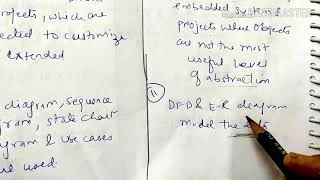 rojects, which are
ected to customize
extended
diagram, sequence
gram, state chart
gram & use cases
are used.
embedded system
projects where objects
are not the most
useful level
of abstraction
11
DFD & E-R diagram
model the